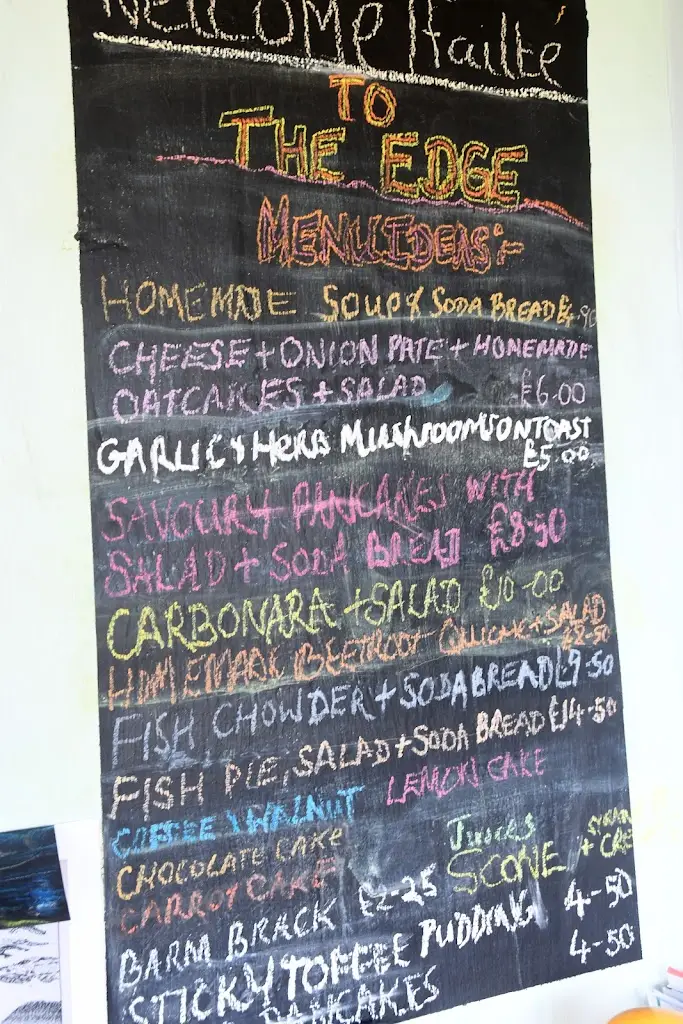 WELCOME Failté
TO
THE EDGE
MENU IDEAS:-
HOMEMADE SOUP & SODA BREAD £4.90
CHEESE + ONION PATE + HOMEMADE
OATCAKES + SALAD £6.00
GARLIC + HERB MUSHROOMS ON TOAST
£5.00
SAVOURY PANCAKES WITH
SALAD + SODA BREAD £8.50
CARBONARA + SALAD £10-00
HOMEMADE BEETROOT QUICHE + SALAD
£8-50
FISH CHOWDER + SODA BREAD £9-50
FISH PIE, SALAD + SODA BREAD £14-50
COFFEE & WALNUT LEMON CAKE
CHOCOLATE CAKE Juices
CARROT CAKE SCONE + CRE
BARM BRACK £2-25
STICKY TOFFEE PUDDING 4-50
PANCAKES 4-50